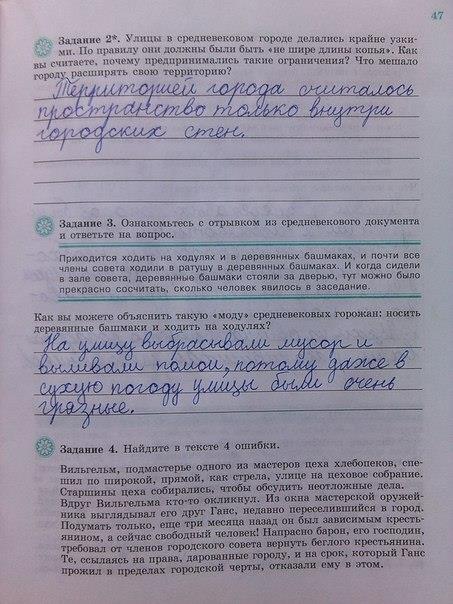 47
Задание 2*. Улицы в средневековом городе делались крайне узки-
ми. По правилу они должны были быть «не шире длины копья». Как
вы считаете, почему предпринимались такие ограничения? Что мешало
городу расширять свою территорию?
Территорией города считалось
пространство только внутри
городских стен.
Задание 3. Ознакомьтесь с отрывком из средневекового документа
и ответьте на вопрос.
Приходится ходить на ходулях и в деревянных башмаках, и почти все
члены совета ходили в ратушу в деревянных башмаках. И когда сидели
в зале совета, деревянные башмаки стояли за дверью, тут можно было
прекрасно сосчитать, сколько человек явилось в заседание.
Как вы можете объяснить такую «моду» средневековых горожан: носить
деревянные башмаки и ходить на ходулях?
На улицу выбрасывали мусор и
выливали помои, потому даже в
сухую погоду улицы были очень
грязные.
Задание 4. Найдите в тексте 4 ошибки.
Вильгельм, подмастерье одного из мастеров цеха хлебопеков, спе-
шил по широкой, прямой, как стрела, улице на цеховое собрание.
Старшины цеха собирались, чтобы обсудить неотложные дела.
Вдруг Вильгельма кто-то окликнул. Из окна мастерской оружей-
ника выглядывал его друг Ганс, недавно переселившийся в город.
Подумать только, еще три месяца назад он был зависимым кресть-
янином, а сейчас свободный человек! Напрасно барон, его господин,
требовал от членов городского совета вернуть беглого крестьянина.
Те, ссылаясь на права, дарованные городу, и на срок, который Ганс
прожил в пределах городской черты, отказали ему в этом.